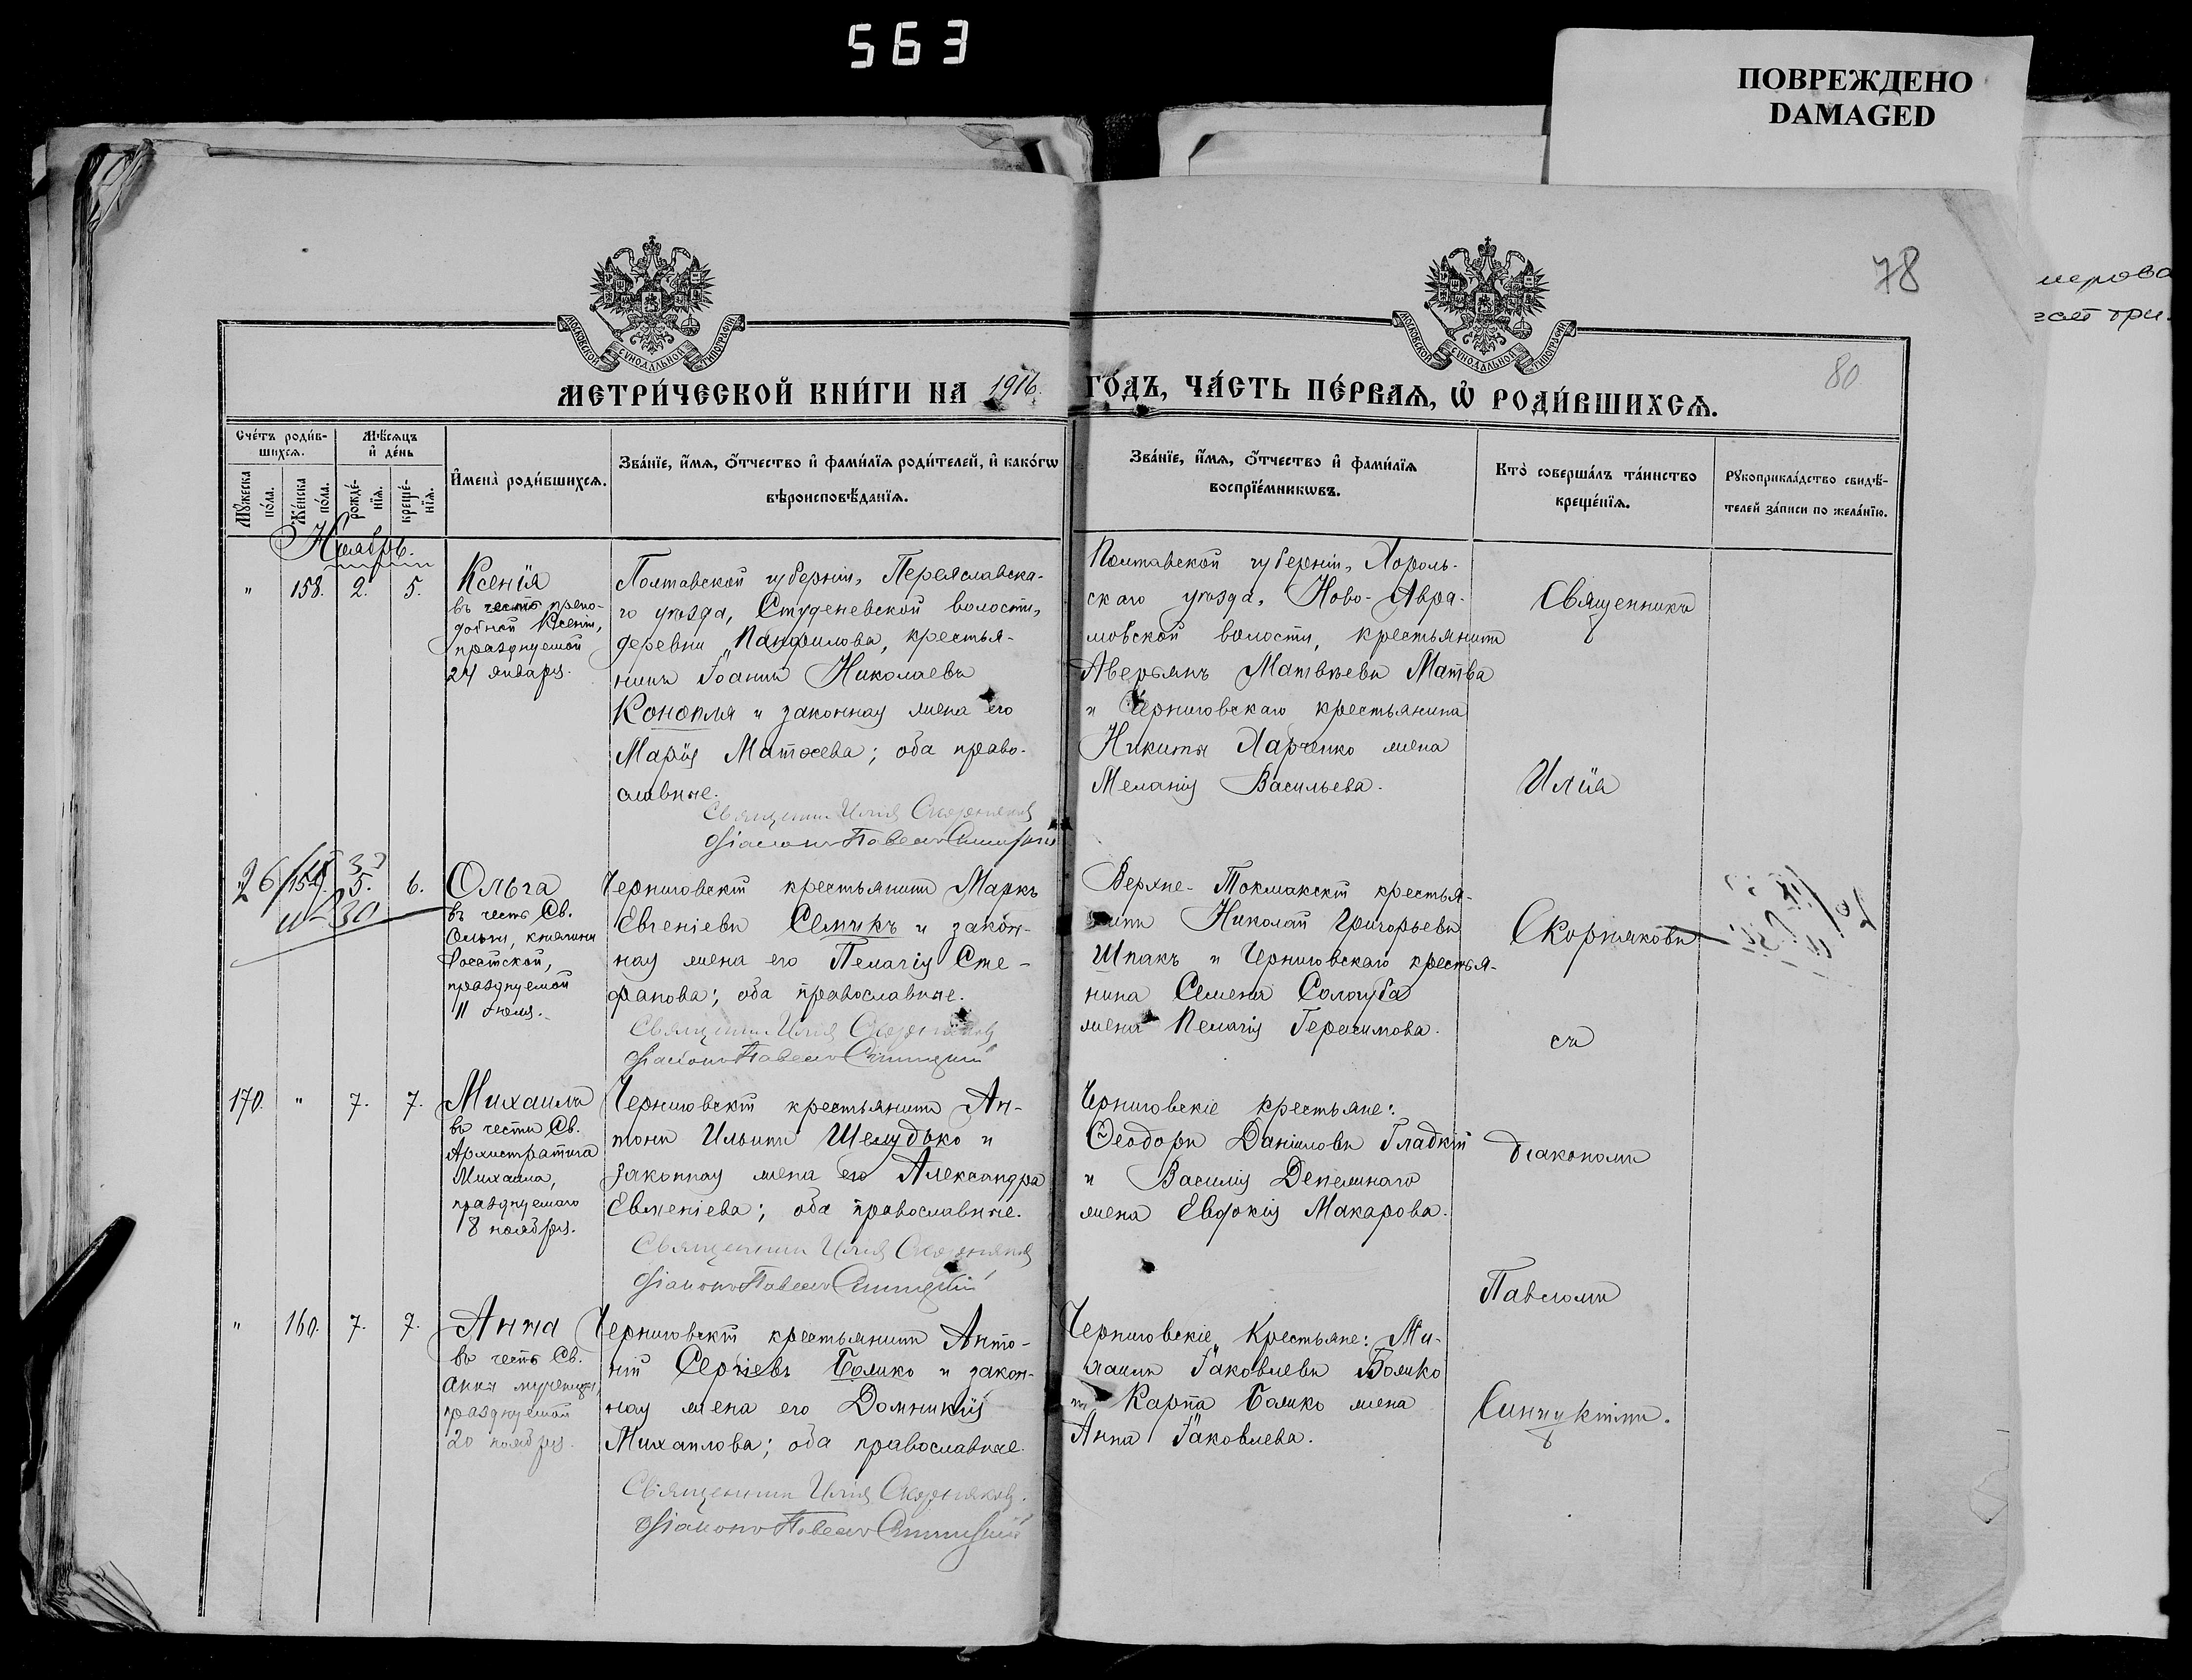 563
ПОВРЕЖДЕНО
DAMAGED
78
80
МОСКОВСКОЙ СѴНОДАЛЬНОЙ ТИПОГРАФІИ
МОСКОВСКОЙ СѴНОДАЛЬНОЙ ТИПОГРАФІИ
МЕТРИ́ЧЕСКОЙ КНИ́ГИ НА 1916.
ГО́ДЪ, ЧА́СТЬ ПЕ́РВАѦ, Ѡ҆ РОДИ́ВШИХСѦ.
Сче́тъ роди́в-
шихсѧ.
Мѣ́сѧцъ
и҆ де́нь
Мꙋжеска
по́ла.
Же́нска
по́ла.
рожде́-
нїѧ.
креще́-
нїѧ.
И҆мена̀ роди́вшихсѧ.
Зва́нїе, и҆́мѧ, ѻ҆́тчество и҆ фами́лїѧ роди́телей, и҆ како́гѡ
вѣроисповѣ́данїѧ.
Зва́нїе, и҆́мѧ, ѻ҆́тчество и҆ фами́лїѧ
воспрїе́мникѡвъ.
Кто̀ соверша́лъ та́инство
креще́нїѧ.
Рꙋкоприкла́дство свидѣ́-
телей за́писи по жела́нїю.
Ноябрь.
" 158. 2. 5.
Ксенія
въ честь препо-
добной Ксеніи,
празднуемой
24 января.
Полтавской губерніи, Переяславска-
го уѣзда, Студеневской волости,
деревни Панфилова, крестья-
нинъ Іоаннъ Николаевъ
Конопля и законная жена его
Марія Матѳеева; оба право-
славные.
Священникъ Илія Скорняковъ
Діаконъ Павелъ
Полтавской губерніи, Хороль-
скаго уѣзда, Ново-Авра-
мовской волости, крестьянинъ
Аверьянъ Матвѣевъ Матва
и Черниговскаго крестьянина
Никиты Харченко жена
Меланія Васильева.
Священникъ
Илія
159. 5. 6.
Ольга
въ честь Св.
Ольги, княгини
Россійской,
празднуемой
11 іюля.
Черниговскій крестьянинъ Маркъ
Евгеніевъ Семчикъ и закон-
ная жена его Пелагія Сте-
фанова; оба православные.
Священникъ Илія Скорняковъ
Діаконъ Павелъ
Верхне-Токмакскій крестья-
нинъ Николай Григорьевъ
Шпакъ и Черниговскаго крестья-
нина Семена Сологуба
жена Пелагія Герасимова.
Скорняковъ
съ
170. " 7. 7.
Михаилъ
въ честь Св.
Архистратига
Михаила,
празднуемаго
8 ноября.
Черниговскій крестьянинъ Ан-
тонъ Ильинъ Шелудько и
законная жена его Александра
Евменіева; оба православные.
Священникъ Илія Скорняковъ
Діаконъ Павелъ
Черниговскіе крестьяне:
Ѳеодоръ Даніиловъ Гладкій
и Василія
жена Евдокія Макарова.
діакономъ
Павломъ
" 160. 7. 7.
Анна
въ честь Св.
Анны мученицы,
празднуемой
20 ноября.
Черниговскій крестьянинъ Анто-
ній Сергіевъ Божко и закон-
ная жена его Домникія
Михаилова; оба православные.
Священникъ Илія Скорняковъ.
Діаконъ Павелъ
Черниговскіе крестьяне: Ми-
хаилъ Іаковлевъ Божко
и Карпа Божко жена
Анна Іаковлева.